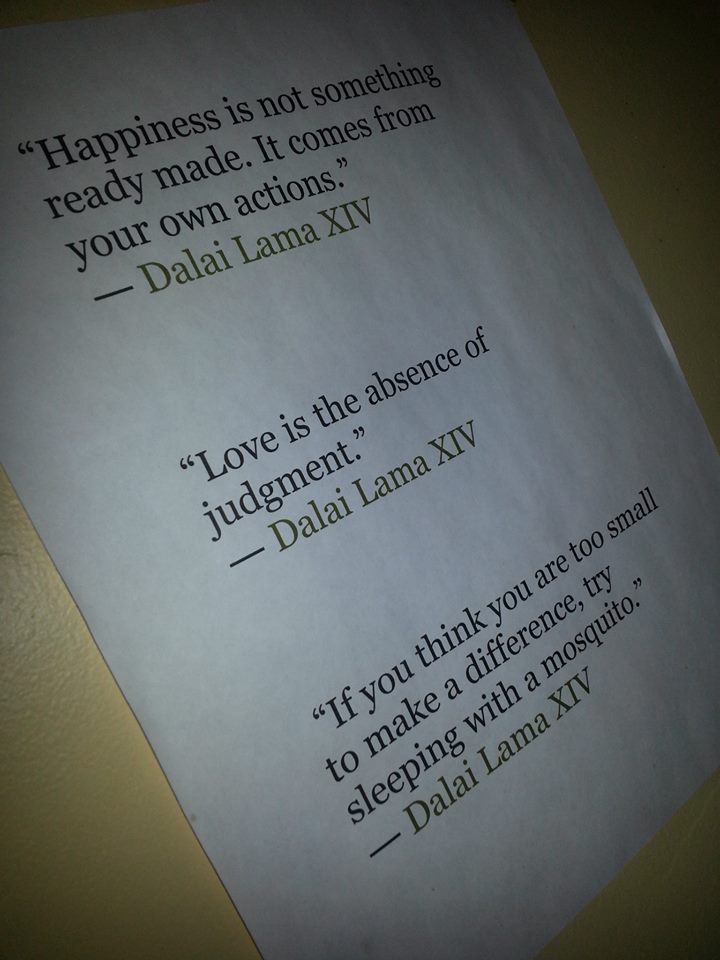 “Happiness is not something
ready made. It comes from
your own actions.”
— Dalai Lama XIV
“Love is the absence of
judgment.”
— Dalai Lama XIV
“If you think you are too small
to make a difference, try
sleeping with a mosquito.”
— Dalai Lama XIV